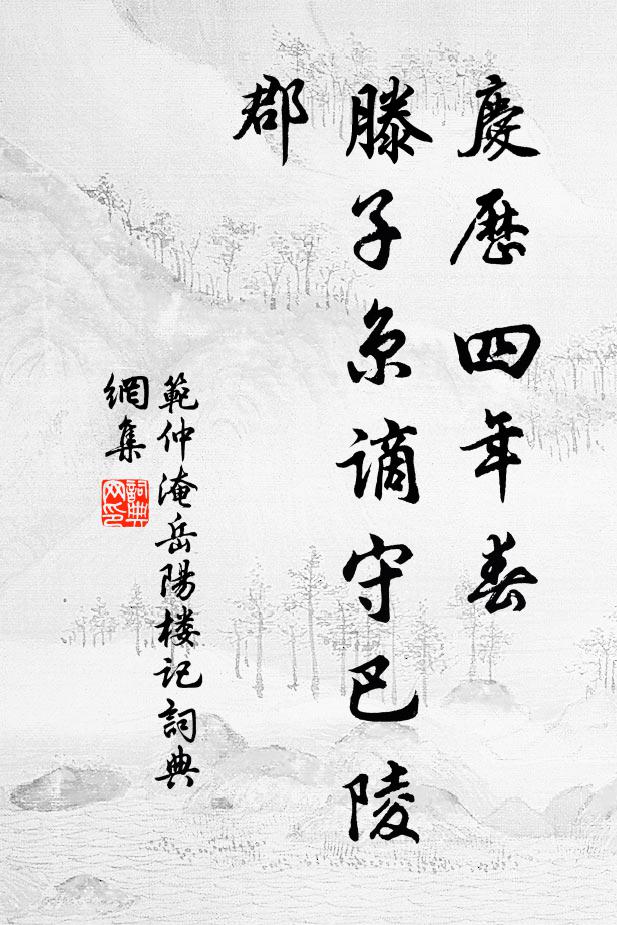 慶歷四年春
滕子京謫守巴陵
郡
範仲淹岳陽楼记詞典
網集
詞典
网印